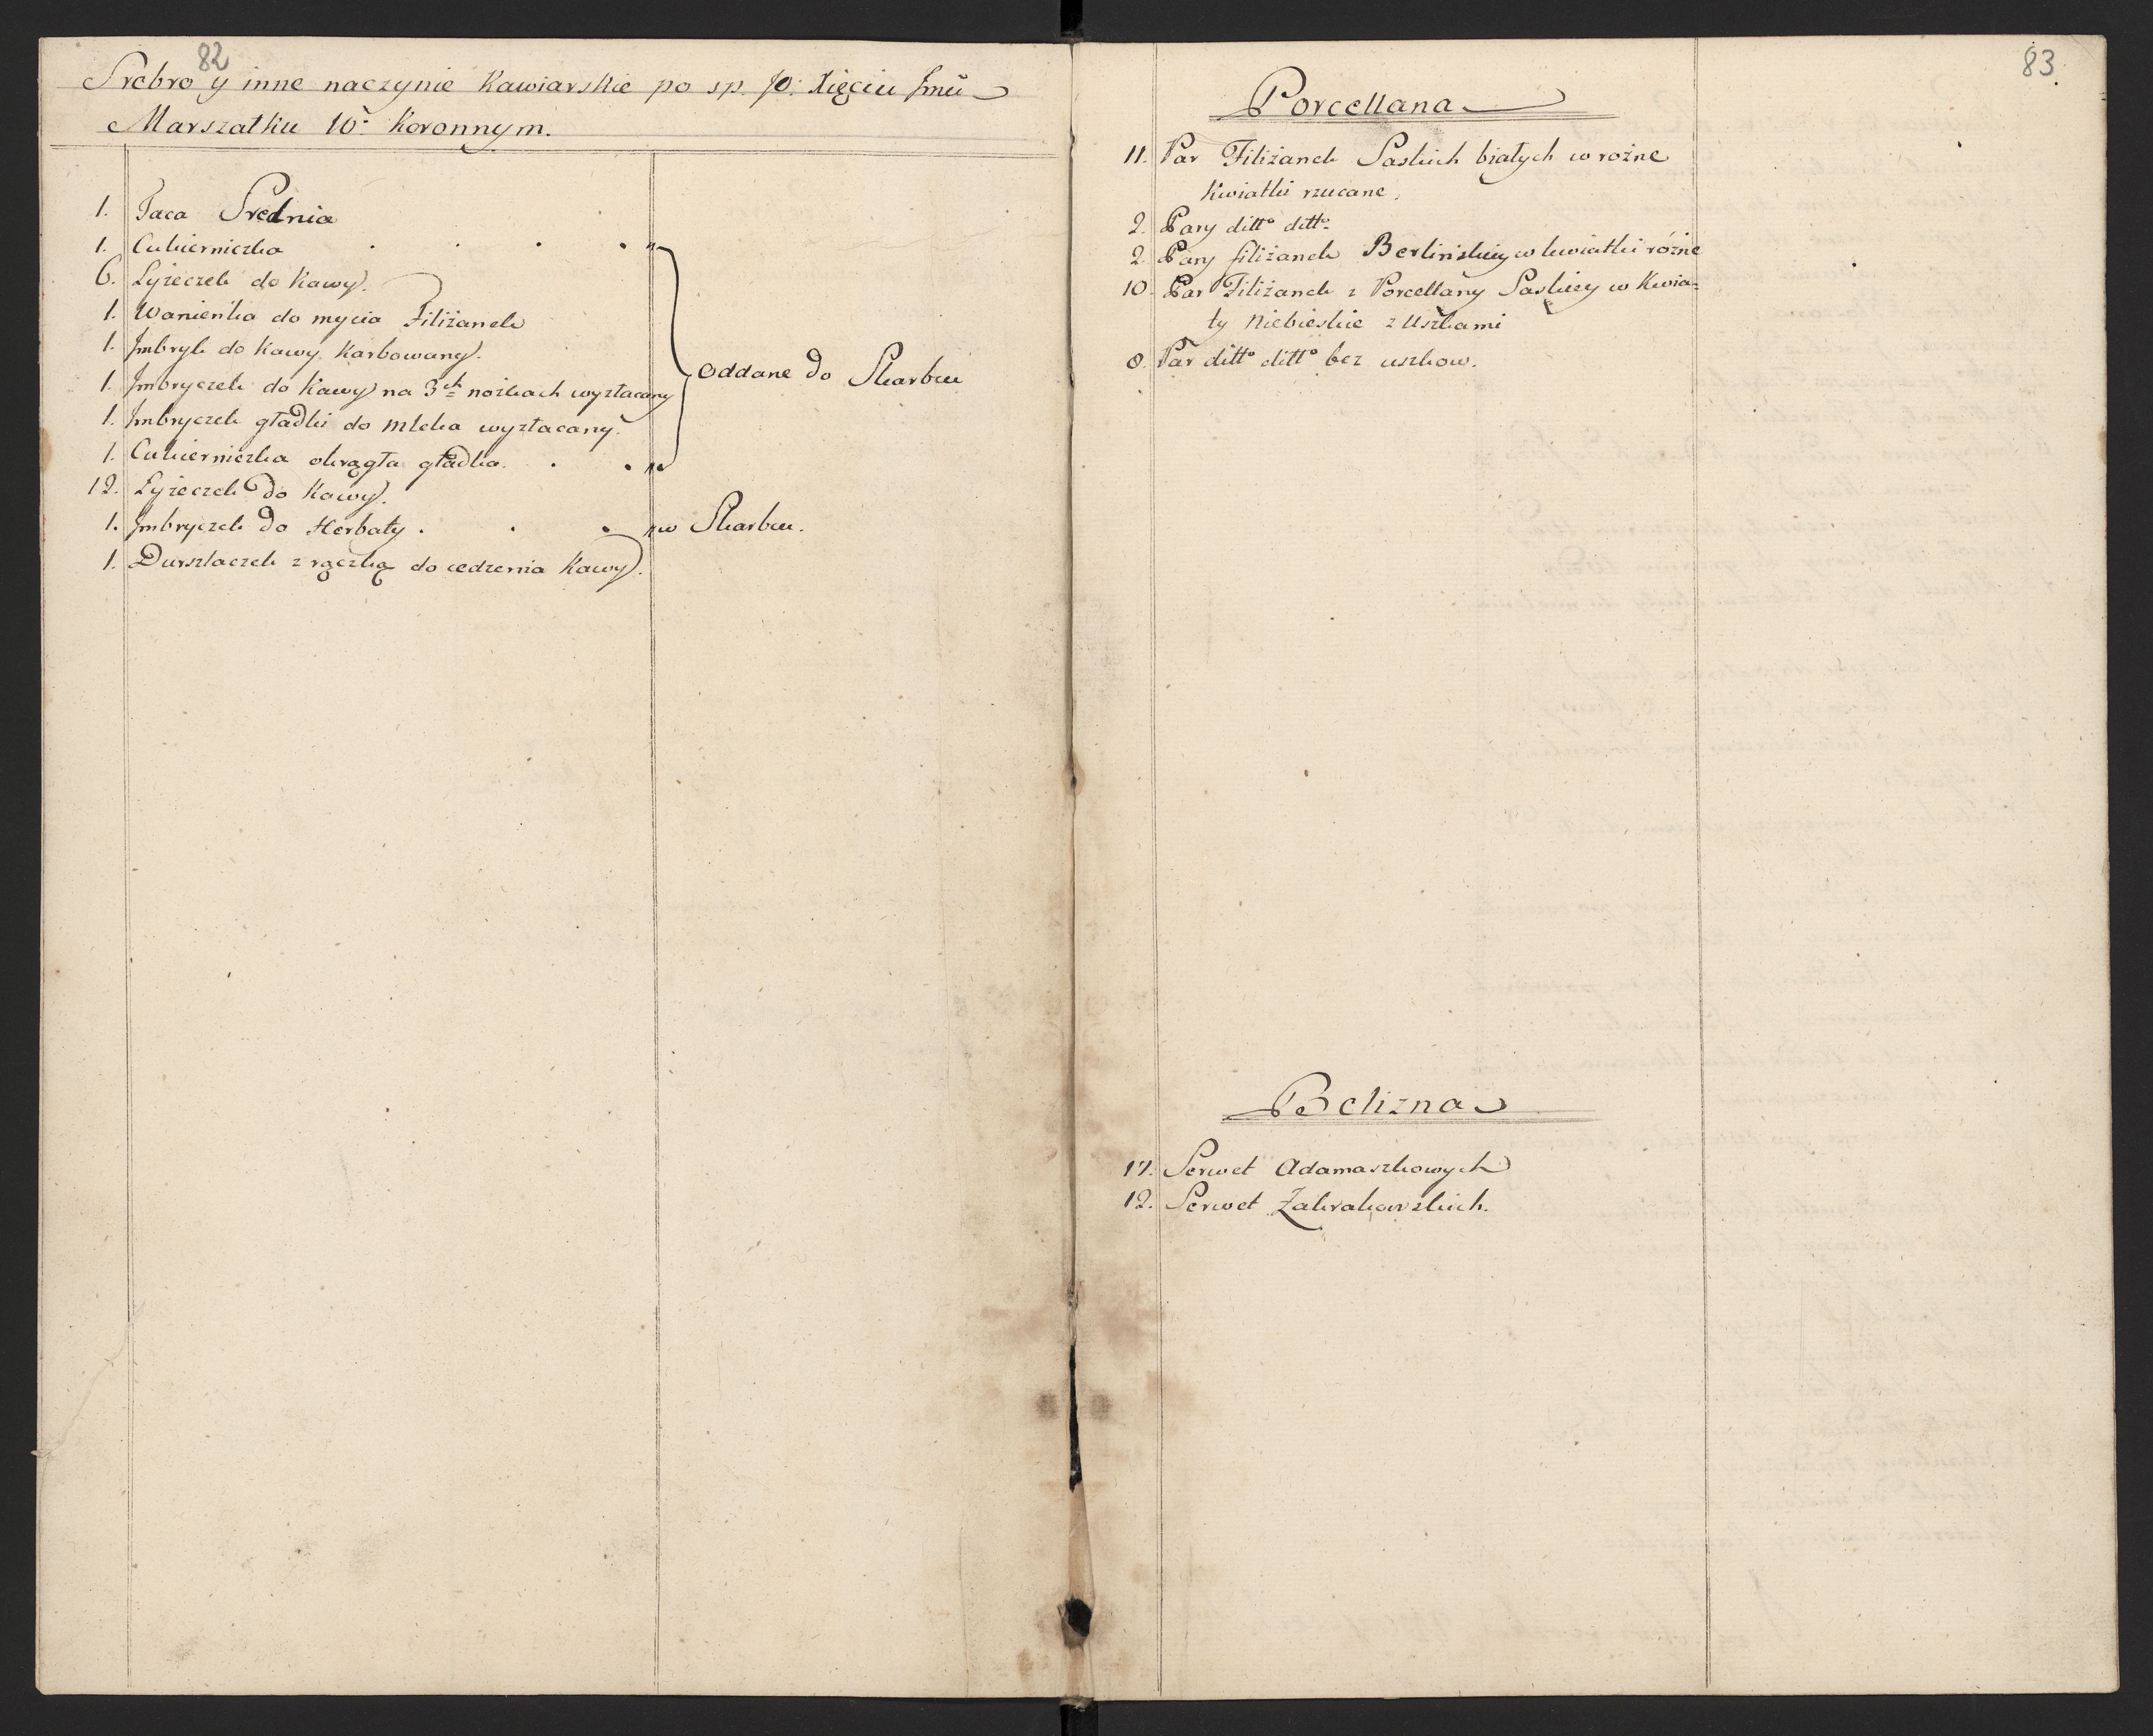 82
Srebro y inne naczynie Kawiarskie po sp. JO: Xięciu Jmći
Marszałku W: Koronnym.
1. Taca Srednia
1. Cukierniczka . . . . "
6. Łyżeczek do Kawy.
1. Wanienka do mycia Filiżanek
1. Jmbryk do Kawy Karbowany.
1. Jmbryczek do Kawy na 3ch nóżkach wyzłacany
oddane do Skarbcu
1. Jmbryczek gładki do mleka wyzłacany.
1. Cukierniczka okrągła gładka. . . "
12. Łyżeczek do Kawy.
1. Jmbryczek do Herbaty . . . " w Skarbcu.
1. Durszlaczek z rączką do cedzenia Kawy.
83.
Porcellana
11. Par Filiżanek Saskich białych w rożne
Kwiatki rzucane.
2. Pary ditto ditto
2. Pary filiżanek Berlinskiey w kwiatki różne
10. Par Filiżanek z Porcellany Saskiey w Kwia=
ty Niebieskie z Uszkami
8. Par ditto ditto bez uszkow.
Belizna
17. Serwet Adamaszkowych
12. Serwet Zakrakowskich.